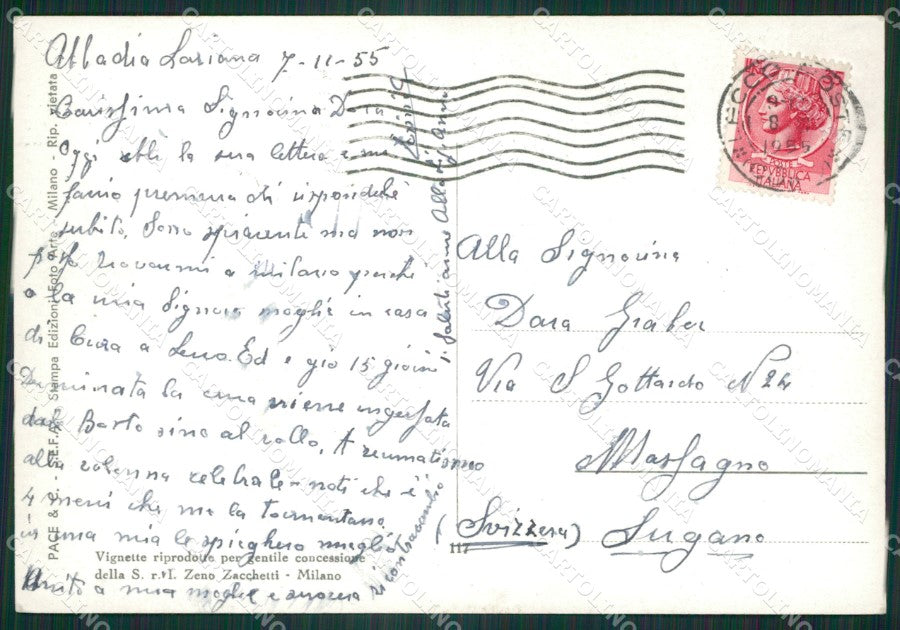 Abbadia Lariana 7-11-55
Carissima Signorina Dora
Oggi ebbi la sua lettera e mi
fanno premura di
subito. Sono spiacente ma non
posso trovarmi a Milano perchè
o la mia Signora moglie in casa
di Cura a Lecco. Ed è già 15 giorni
la cura viene ingessata
dal Busto sino al collo, A reumatismo
alla colonna celebrale noti che è
4 mesi che me la tormentano
in una mia le spiegherò meglio
Unito a mia moglie e
ricontracambio
saluti
Alla Signorina
Dora Graber
Via S Gottardo N 24
Massagno
(Svizzera) Lugano
117
PACE &
Stampa Edizioni Foto Arte - Milano - Rip. vietata
Vignette riprodotte per gentile concessione
della S. r. l. Zeno Zacchetti - Milano
LECCO POSTE
8
1955
POSTE
REPVBBLICA
ITALIANA
CARTOLINOMANIA